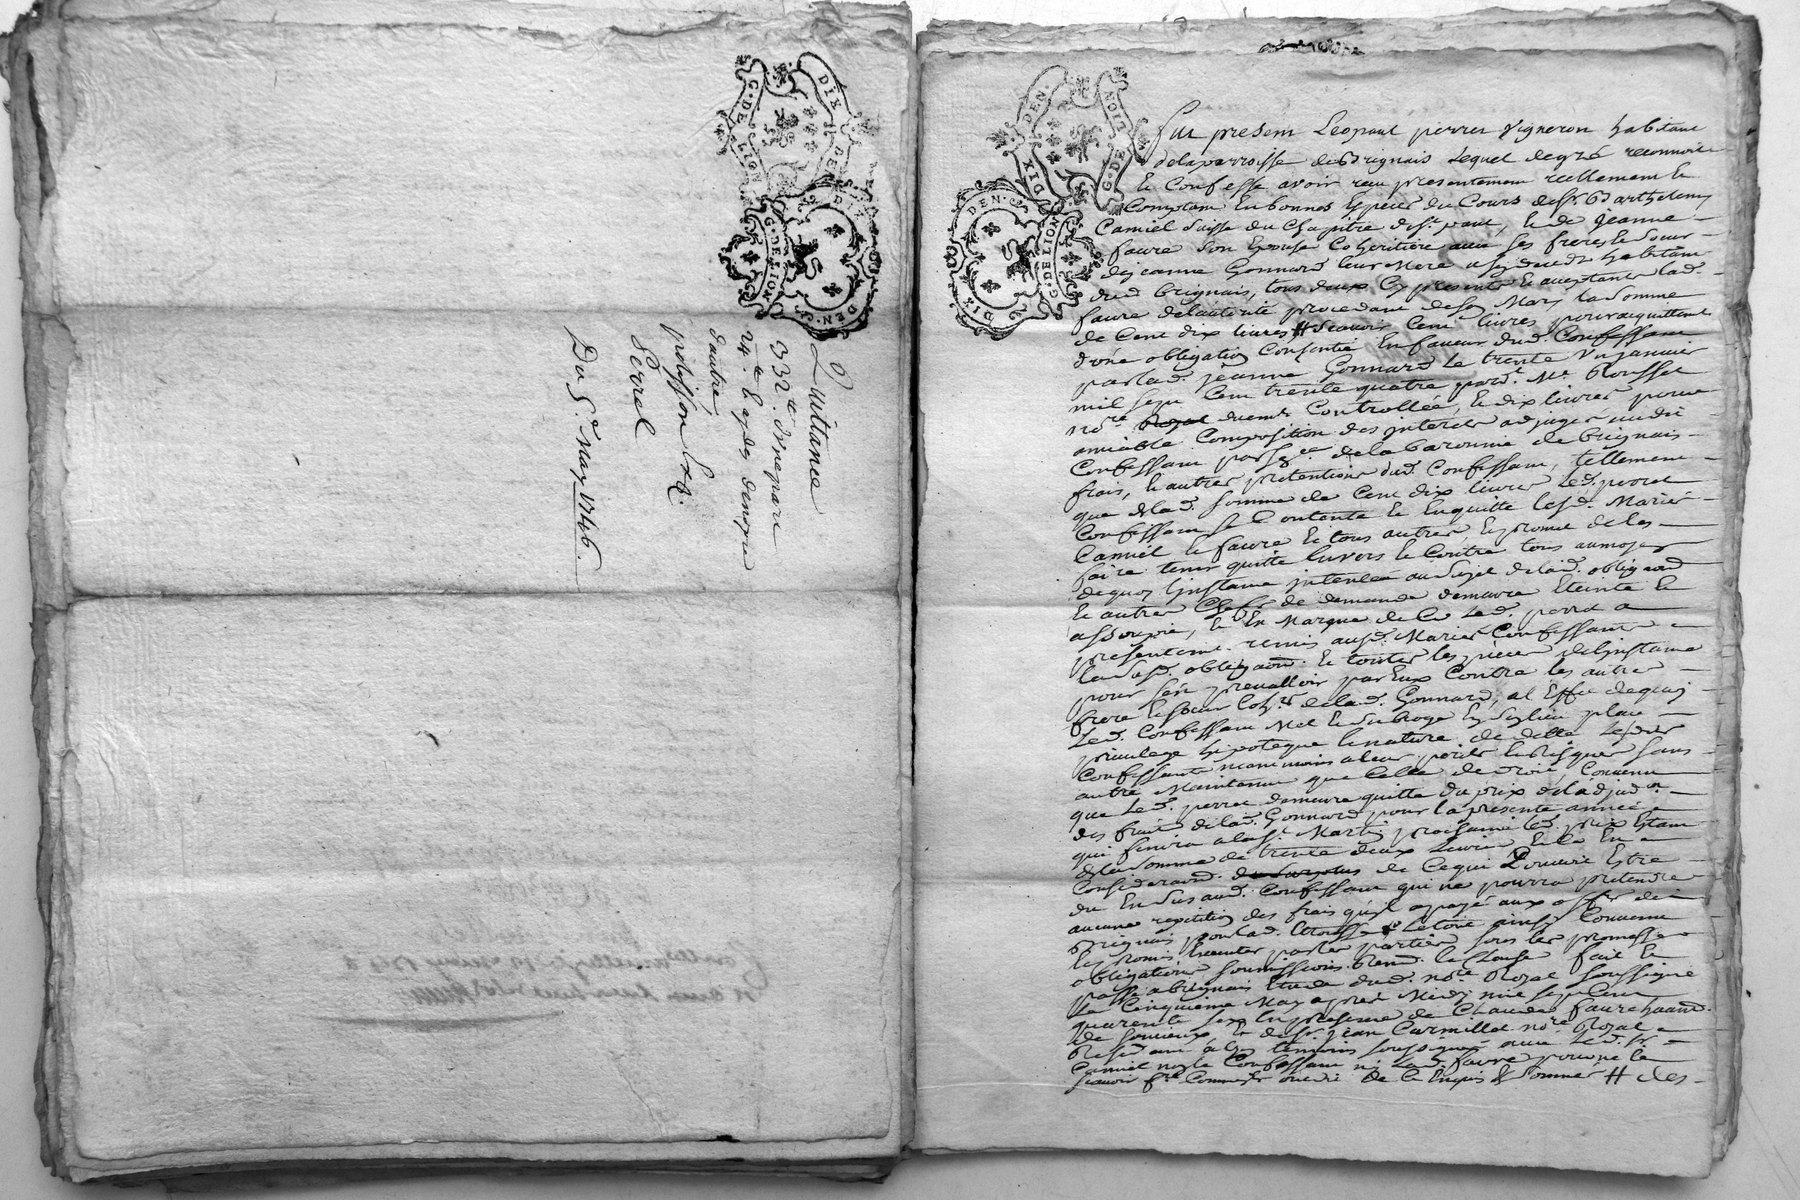 G. DE LION
DIX DEN.
G. DE LION
DIX DEN.
Quittance
332tt d'inepart
24tt
d'autre,
polisson
Perrel
Du 5e may 1746
DIX DEN.
G. DE LION
DIX DEN.
G. DE LION
Fut present Leonard perret vigneron habitant
dela parroisse de Brignais Lequel de gré reconnoit
Et Confesse avoir receu presentement reellement le
Comptant En bonnes Especes du Cours de Sr Barthelemy
Camiel suisse du Chapitre de St paul, Et de Jeanne
faure son Epouse Coheritiere avec ses freres Et soeur
de jeanne Gonnard leur Mere habitant
dud. brignais, tous deux Cy presents Et acceptants lad.
faure de l'autorité procedant de son Mary la Somme
de Cent dix livres # scavoir Cent livres pour acquittement
d'une obligation Consentie En faveur dud. Confessant
par lad. jeanne Gonnard Le trente Un janvier
mil sept Cent trente quatre pard.t Me Rousset
nore Royal duement Controllée, Et dix livres pour
amiable Composition des interets adjugés audit
Confessant par de la baronnie de brignais
frais, Et autres pretentions dud. Confessant, tellement
que de lad. somme de Cent dix livres Led. perret
Confessant se Contente Et En quitte lesd. Mariés
Camiel Et faure Et tous autres, Et promet de les
faire tenir quitte Envers Et Contre tous au moyen
dequoy L'instance intentée au Sujet de lad. obligaon
Et autres Chefs de demande demeure Eteinte Et
assoupie, Et En Marque de Ce Led. perret a
presentemt. remis auxd. Mariés Confessants
lad. obligaon. Et toutes les pieces de L'instance
pour s'en prevalloir par Eux Contre les autres
frere Et soeur Cohers de lad. Gonnard, al Effet dequoy
Led. Confessant Met Et subroge En son lieu place
privilege hipoteque Et nature de dette Lesdits
Confessants neanmoins a leurs perils Et risques sans
autre Maintenue que Celle de droit, Convenu
que Led. perret demeure quitte du prix de l'adjudon
des fruits de lad. Gonnard pour la presente année
qui finira a la St. Martin prochaine led. prix Etant
de la somme de trente deux livres Et Ce En
Consideraon. du surplus de Ce qui Pouvoit Estre
du En sus aud. Confessant qui ne pourra pretendre
aucune repetition des frais qu'il a payé aux offers de
Brignais pour lad. Letout ainsi Convenu
les promis Executer par les parties sous les promesses
obligations soumissions Renon. Et Clauses fait Et
passé a brignais Etude dud. nore Royal soussigné
Le Cinquieme May apres Midy mil sept Cent
quarente six En presence de Claude faure
de Et de Sr. jean Carmillet nore Royal
Residant a temoins soussignés avec Led. Sr
Camiel non Le Confessant ni Lad. faure pour ne le
scavoir fre Comme Ils ont dit de Ce Enquis Et Sommés # des